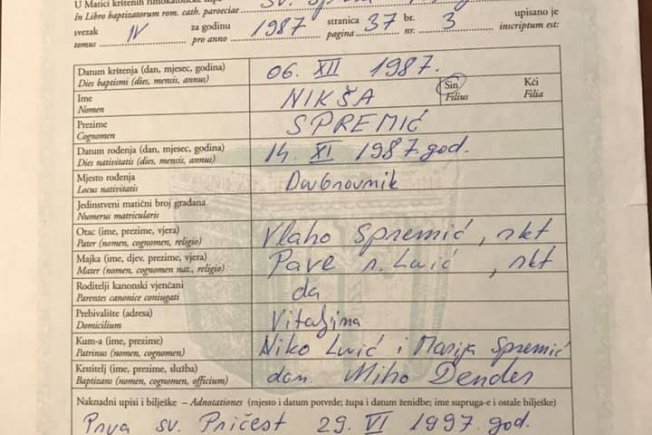 U Matici krštenih rimokatoličke župe
In Libro baptizatorum rom. cath. paroeciae Sv.
svezak IV za godinu 1987 stranica 37 br. 3 upisano je
tomus pro anno pagina nr. inscriptum est:
Datum krštenja (dan, mjesec, godina) 06. XII 1987.
Dies baptismi (dies, mensis, annus)
Ime NIKŠA Sin Kći
Nomen Filius Filia
Prezime SPREMIĆ
Cognomen
Datum rođenja (dan, mjesec, godina) 14. XI 1987. god.
Dies nativitatis (dies, mensis, annus)
Mjesto rođenja Dubrovnik
Locus nativitatis
Jedinstveni matični broj građana
Numerus matricularis
Otac (ime, prezime, vjera) Vlaho Spremić, rkt
Pater (nomen, cognomen, religio)
Majka (ime, djev. prezime, vjera) Pave r. Lujić, rkt
Mater (nomen, cognomen nat., religio)
Roditelji kanonski vjenčani da
Parentes canonice coniugati
Prebivalište (adresa) Vitaljina
Domicilium
Kum-a (ime, prezime) Niko Lujić i Marija Spremić
Patrinus (nomen, cognomen)
Krstitelj (ime, prezime, služba) don Miho Dender
Baptizans (nomen, cognomen, officium)
Naknadni upisi i bilješke – Adnotationes (mjesto i datum potvrde; župa i datum ženidbe; ime supruga-e i ostale bilješke)
Prva sv. Pričest 29. VI 1997. god.